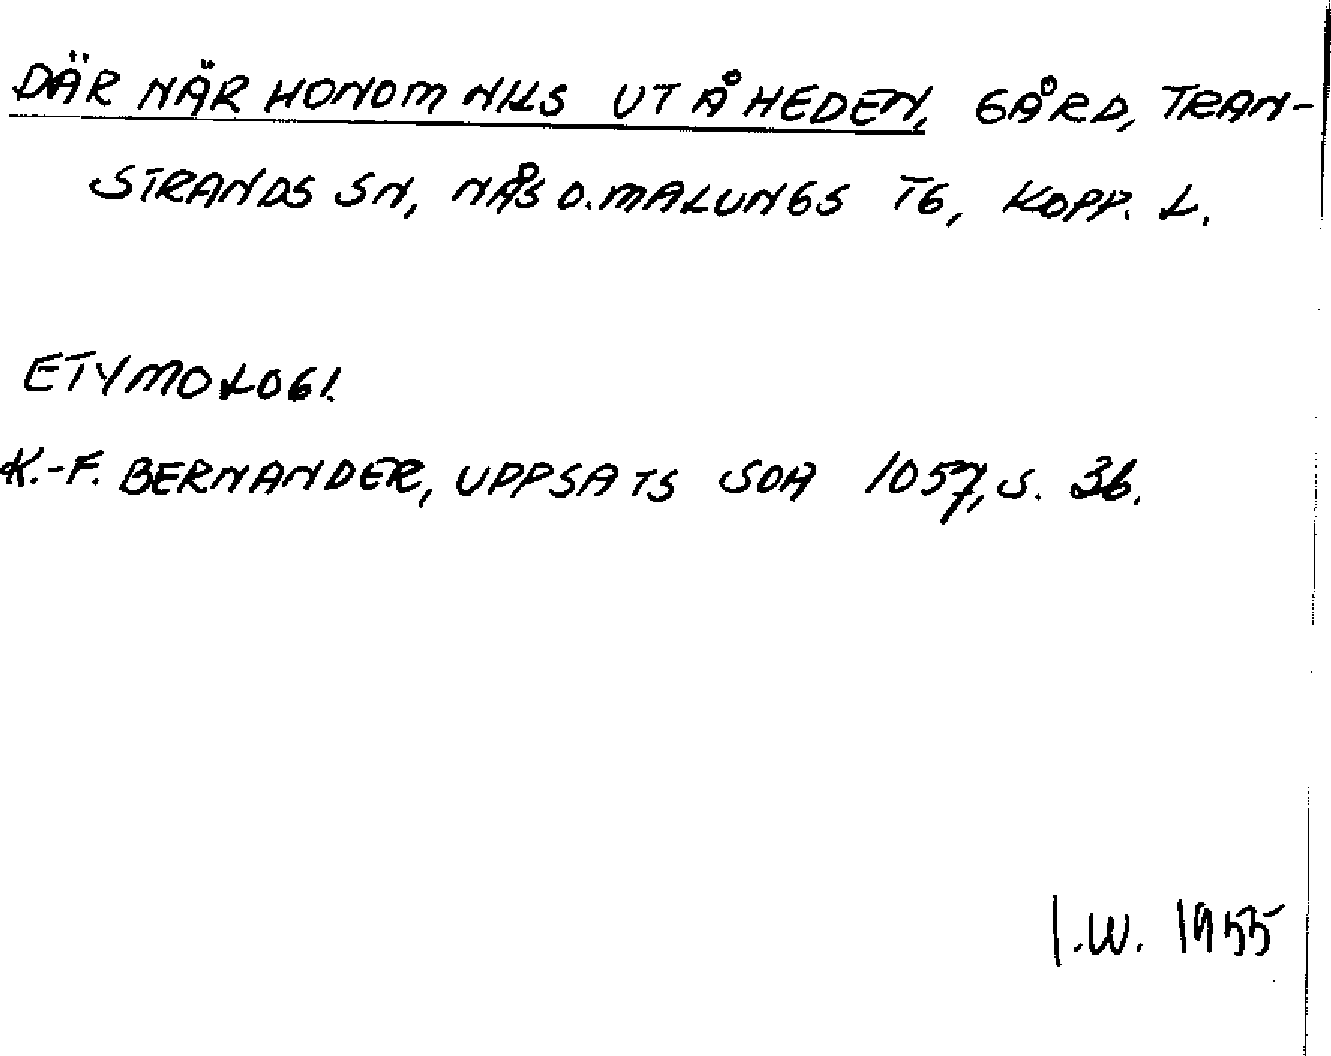 DÄR NÄR HONOM NILS UT Å HEDEN, GÅRD, TRAN-
STRANDS SN, NÅS O. MALUNGS TG, KOPP. L.
ETYMOLOGI.
K.-F. BERNANDER, UPPSATS SOA 1057, S. 36.
I.W. 1955